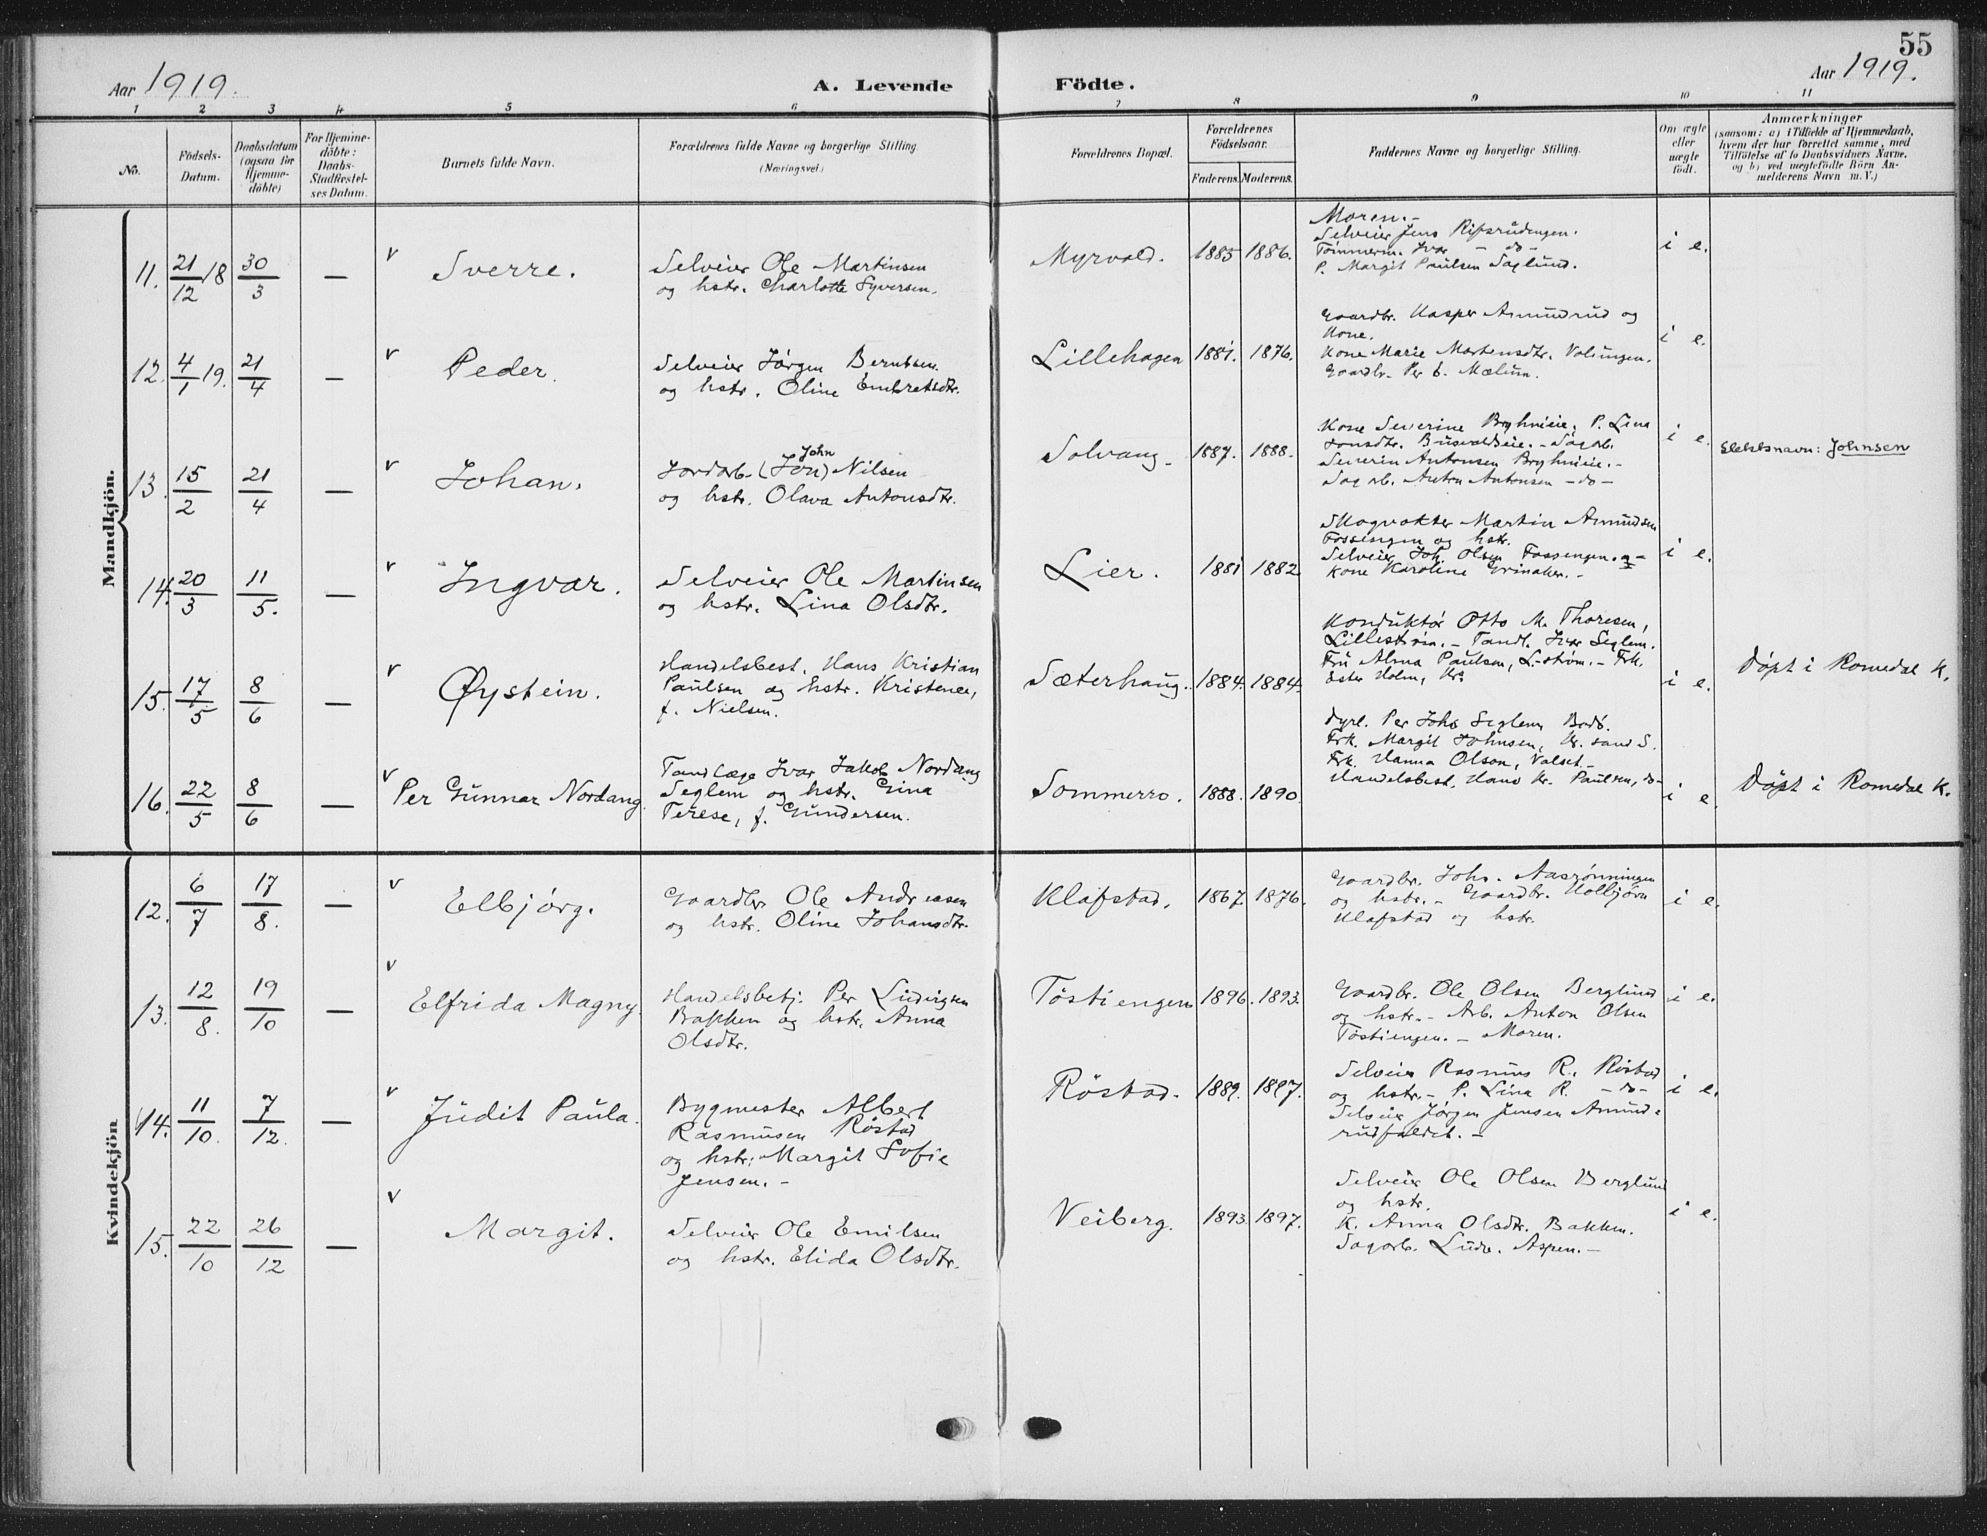 55
Aar 1919. A. Levende Födte. Aar 1919.
1 2 3 4 5 6 7 8 9 10 11
No.
Födsels-
Datum.
Daabsdatum
(ogsaa for
Hjemme-
döbte)
For Hjemme-
döbte:
Daabs-
Stadfæstel-
ses Datum.
Barnets fulde Navn.
Forældrenes fulde Navne og borgerlige Stilling
(Næringsvei.)
Forældrenes Bopæl.
Forældrenes
Födselsaar.
Faderens. Moderens.
Faddernes Navne og borgerlige Stilling.
Om ægte
eller
uægte
födt.
Anmærkninger
(saasom: a) i Tilfælde af Hjemmedaab,
hvem der har forrettet samme, med
Tilföielse af to Daabsvidners Navne,
og b) ved uægtefödte Börn An-
melderens Navn m. V.)
Mandkjön.
11. 21/12 18 30/3 — v Sverre.
Selveier Ole Martinsen
og hstr. Charlotte Syversen.
Myrvold. 1885 1886.
Moren.-
Selveier Jens Ripsrudengen.
Tømmerm. Ivar - do -
P. Margit Paulsen Saglund.
i e.
12. 4/1 19. 21/4 — v Peder.
Selveier Jørgen Berntsen
og hstr. Oline Embretsdtr.
Lillehagen 1881. 1876.
Gaardbr. Kasper Amundrud og
Kone.
Kone Marie Mortensdtr. Volungen.
Gaardbr. Per E. Mælum.
i e.
13. 15/2 21/4 — v Johan.
John
Jordarb. (Jon) Nilsen
og hstr. Olava Antonsdtr.
Solvang. 1887. 1888.
Kone Severine Bryhnieie. P. Lina
Jonsdtr. - Sagarb.
Severin Antonsen Bryhnieie.-
Sagarb. Anton Antonsen - do -
i e.
Slektsnavn: Johnsen
14. 20/3 11/5. — v Ingvar.
Selveier Ole Martinsen
og hstr. Lina Olsdtr.
Lier. 1881 1882
Skogvokter Martin Amundsen
Fossengen og hstr.
Selveier Joh. Olsen Fossengen. -
Kone Karoline Grinaker. -
i e.
15. 17/5 8/6 — v Øystein.
Handelsbest. Hans Kristian
Paulsen og hstr. Kristence,
f. Nielsen.
Sæterhaug. 1884. 1884.
Konduktør Otto M. Thoresen,
Lillestrøm. - Tandl. Ivar Seglem.
Fru Alma Paulsen, L-strøm. - Frk.
Ester Holm, Kr.
i e.
Døpt i Romedal K.
16. 22/5 8/6 — v Per Gunnar Nordang.
Tandlæge Ivar Jakob Nordang
Seglem og hstr. Gina
Terese, f. Gundersen.
Sommerro. 1888. 1890.
Dyrl. Per Johs Seglem Bodö.
Frk. Margit Johnsen, Kr. sand S.
Frk. Hanna Olson, Valset -
Handelsbest. Hans Kr. Paulsen, do-
i e.
Døpt i Romedal K.
Kvindekjön
12. 6/7 17/8. — v Elbjørg.
Gaardbr Ole Andreasen
og hstr. Oline Johansdtr.
Klafstad. 1867. 1876.
Gaardbr. Johs. Aasrønningen
og hstr. - Gaardbr. Kolbjørn
Klafstad og hstr.
i e.
13. 12/8. 19/10 — v Elfrida Magny.
Handelsbetj. Per Ludvigsen
Bakken og hstr. Anna
Olsdtr.
Töstiengen 1896. 1893.
Gaardbr. Ole Olsen Berglund
og hstr. - Arb. Anton Olsen
Töstiengen. - Moren.
i e.
14. 11/10. 7/12. — v Judit Paula.
Bygmester Albert
Rasmusen Röstad
og hstr. Margit Sofie
Jensen. -
Röstad. 1889. 1897.
Selveier Rasmus R. Röstad
og hstr. - P. Lina R. - do -
Selveier Jørgen Jensen Amund-
rudfaldet. -
i e.
15. 22/10 26/12 — v Margit.
Selveier Ole Emilsen
og hstr. Elida Olsdtr.
Veiberg. 1893. 1897.
Selveier Ole Olsen Berglund
og hstr.
K. Anna Olsdtr. Bakken.
Sagarb. Ludv. Aspen. -
i e.